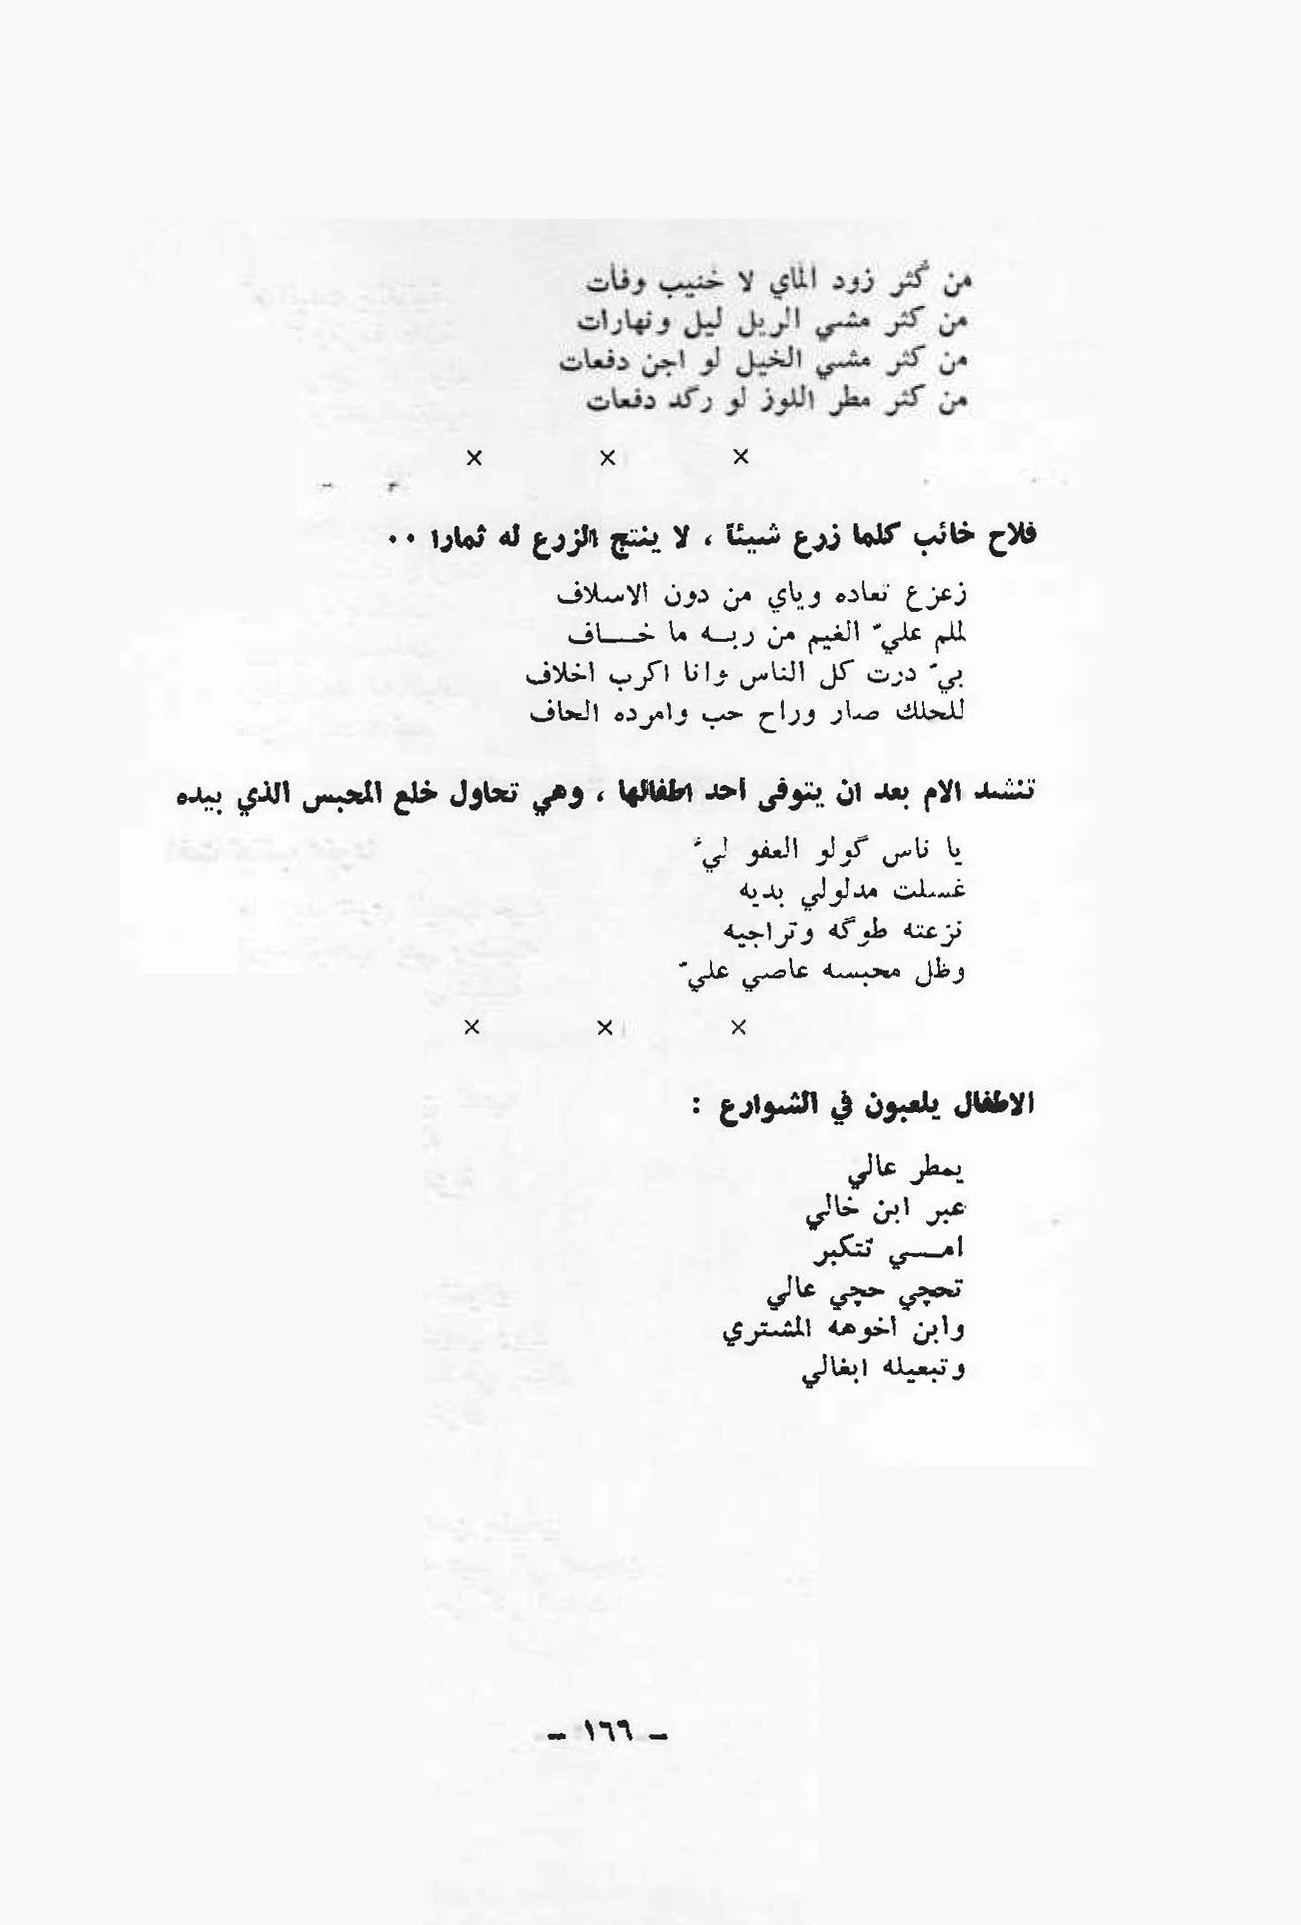 من گثر زود الماي لا خنيب وفات
من كثر مشي الريل ليل ونهارات
من كثر مشي الخيل لو اجن دفعات
من كثر مطر اللوز لو رگد دفعات
× × ×
فلاح خائب كلما زرع شيئاً ، لا ينتج الزرع له ثمارا ٠٠
زعزع تعاده وياي من دون الاسلاف
لملم عليّ الغيم من ربـه ما خـــاف
بيّ درت كل الناس وانا اكرب اخلاف
للحلك صار وراح حب وامرده الحاف
تنشد الام بعد ان يتوفى احد اطفالها ، وهي تحاول خلع المحبس الذي بيده
يا ناس گولو العفو ليّ
غسلت مدلولي بديه
نزعته طوگه وتراجيه
وظل محبسه عاصي عليّ
× × ×
الاطفال يلعبون في الشوارع :
يمطر عالي
عبر ابن خالي
امـــي تتكبر
تحچي حچي عالي
وابن اخوهه المشتري
وتبعيله ابغالي
ــ ١٦٦ ــ